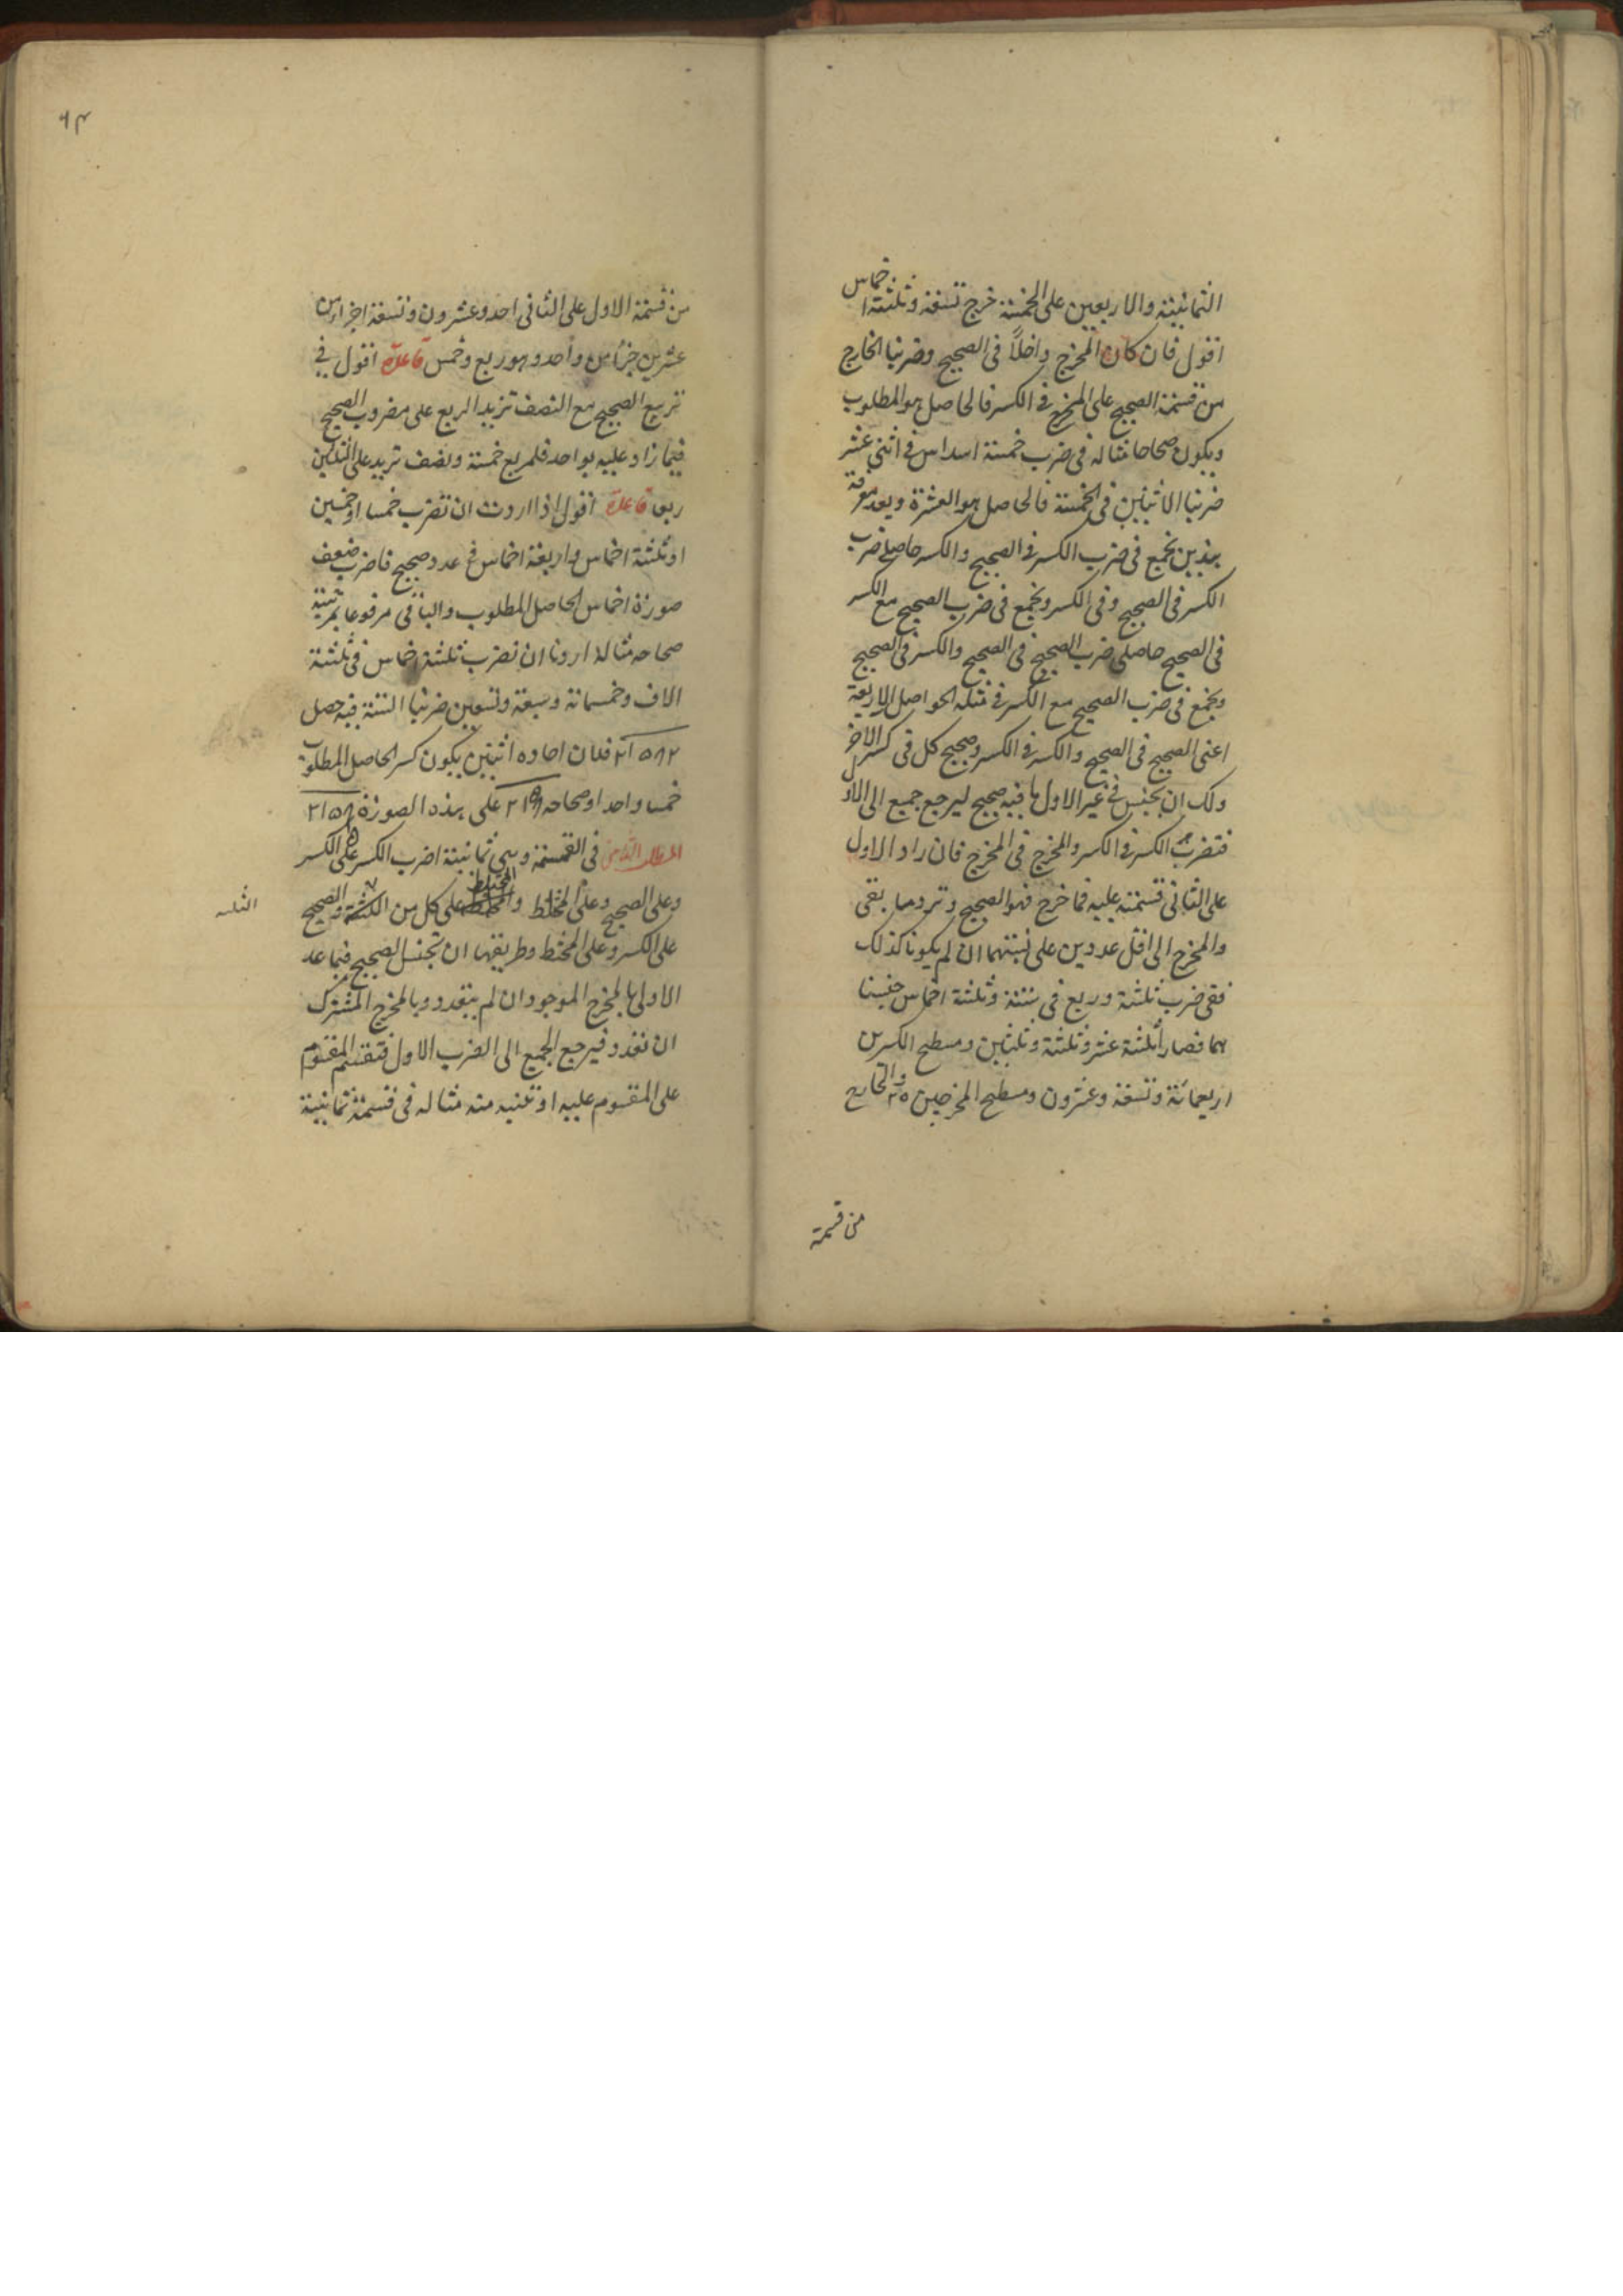 الثمانية والاربعين على الخمسة خرج تسعة وثلثة اخماس
اقول فان كان المخرج داخلاً فى الصحيح وضربنا الخارج
من قسمة الصحيح على المخرج فى الكسر فالحاصل هو المطلوب
ويكون صحاحا مثاله فى ضرب خمسة اسداس فى اثنى عشر
ضربنا الاثنين فى الخمسة فالحاصل هو العشرة وبعد معرفة
هذين تجمع فى ضرب الكسر فى الصحيح والكسر حاصلى ضرب
الكسر فى الصحيح وفى الكسر وتجمع فى ضرب الصحيح مع الكسر
فى الصحيح حاصلى ضرب الصحيح فى الصحيح والكسر فى الصحيح
وتجمع فى ضرب الصحيح مع الكسر فى مثله الحواصل الاربعة
اعنى الصحيح فى الصحيح والكسر فى الكسر وصحيح كل فى كسر الاخر
ولك ان تجنس فى غير الاول ما فيه صحيح ليرجع جميع الى الاول
فتضرب الكسر فى الكسر والمخرج فى المخرج فان زاد الاول
على الثانى قسمته عليه فما خرج فهو الصحيح وترد ما بقى
والمخرج الى اقل عددين على نسبتهما ان لم يكونا كذلك
ففى ضرب ثلثة وربع فى ستة وثلثة اخماس جنسنا
هما فصارا ثلثة عشر وثلثة وثلثين ومسطح الكسرين
اربعمائة وتسعة وعشرون ومسطح المخرجين ٢٠ والخارج
من قسمة
٦٣
من قسمة الاول على الثانى احد وعشرون وتسعة اجزاء من
عشرين جزءا من واحد وهو ربع وخمس قاعدة اقول فى
تربيع الصحيح مع النصف تزيد الربع على مضروب الصحيح
فيما زاد عليه بواحد فلمربع خمسة ونصف تزيد على الثلثين
ربعا قاعدة اقول اذا اردت ان تضرب خمسا او خمسين
او ثلثة اخماس او اربعة اخماس فى عدد صحيح فاضرب ضعف
صورة اخماس الحاصل المطلوب والباقى مرفوعا بمرتبة
صحاحه مثاله اردنا ان نضرب ثلثة اخماس فى ثلثة
الاف وخمسمائة وسبعة وتسعين ضربنا الستة فيه حصل
٢١٥٨٢ فلان احاده اثنين يكون كسر الحاصل المطلوب
خمسا واحدا وصحاحه ٢١٥٨ على هذه الصورة ٢١٥٨
المطلب الثامن فى القسمة وهى ثمانية اضرب الكسر على الكسر
وعلى الصحيح وعلى المختلط والمختلط على كل من الثلثة والصحيح
الثلثة
على الكسر وعلى المختلط وطريقها ان تجنس الصحيح فيما عد
الاولى بالمخرج الموجود ان لم يتعدد وبالمخرج المشترك
ان تعدد فيرجع الجميع الى الضرب الاول فتقسم المقسوم
على المقسوم عليه او تنسبه منه مثاله فى قسمة ثمانية